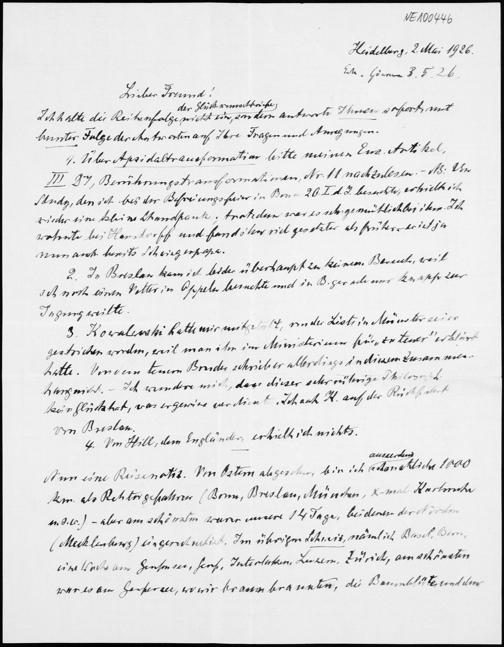 NEA00446
Heidelberg, 2. Mai 1926.
3. 5. 26.
Lieber Freund!
der Glückwunschbriefe
Ich halte die Reihenfolge nicht ein, sondern antworte Ihnen sofort mit
bunter Folge der Antworten auf Ihre Fragen und Anregungen.
1. Über Apsidaltransformation bitte meinen Enz. Artikel,
III D7, Berührungstransformationen, Nr. 11 nachzulesen. – NB. Von
Study, den ich bei der Befreiungsfeier in Bonn besuchte, erhielt ich
wieder eine kleine Standpauke, trotzdem war es sehr gemütlich bei ihm. Ich
wohnte bei Hausdorff und fand ihn viel gesetzter als früher – er ist ja
nun auch bereits Schwiegerpapa.
2. In Breslau kam ich leider überhaupt zu keinem Besuch, weil
ich noch einen Vetter in Oppeln besuchte und in B. gerade nur knapp zur
Tagung weilte.
3. Kowalewski hatte mir mitgeteilt, von der Liste in Münster sei er
gestrichen worden, weil man ihn im Ministerium für „zu teuer" erklärt
hatte. Von einem teuren Bruder schrieb er allerdings in diesem Zusammen-
hang nicht. – Ich wundere mich, dass dieser sehr rührige
kein Glück hat, was er gewiss verdient. Ich sah K. auf der Rückfahrt
von Breslau.
4. Von Hill, dem Engländer, erhielt ich nichts.
Nun eine Reisenotiz. Von Ostern abgesehen, bin ich ausserdem 1000
km. als Rektor gefahren (Bonn, Breslau, München, x-mal Karlsruhe
u.s.w.) – aber am schönsten waren unsere 14 Tage, bei denen der Norden
(Mecklenburg) eingerechnet ist. Im übrigen Schweiz, nämlich Basel, Bern,
eine Woche am Genfersee, Genf, Interlaken, Luzern, Zürich, am schönsten
war es am Genfersee, wo wir braun brannten, die Baumblüte und der